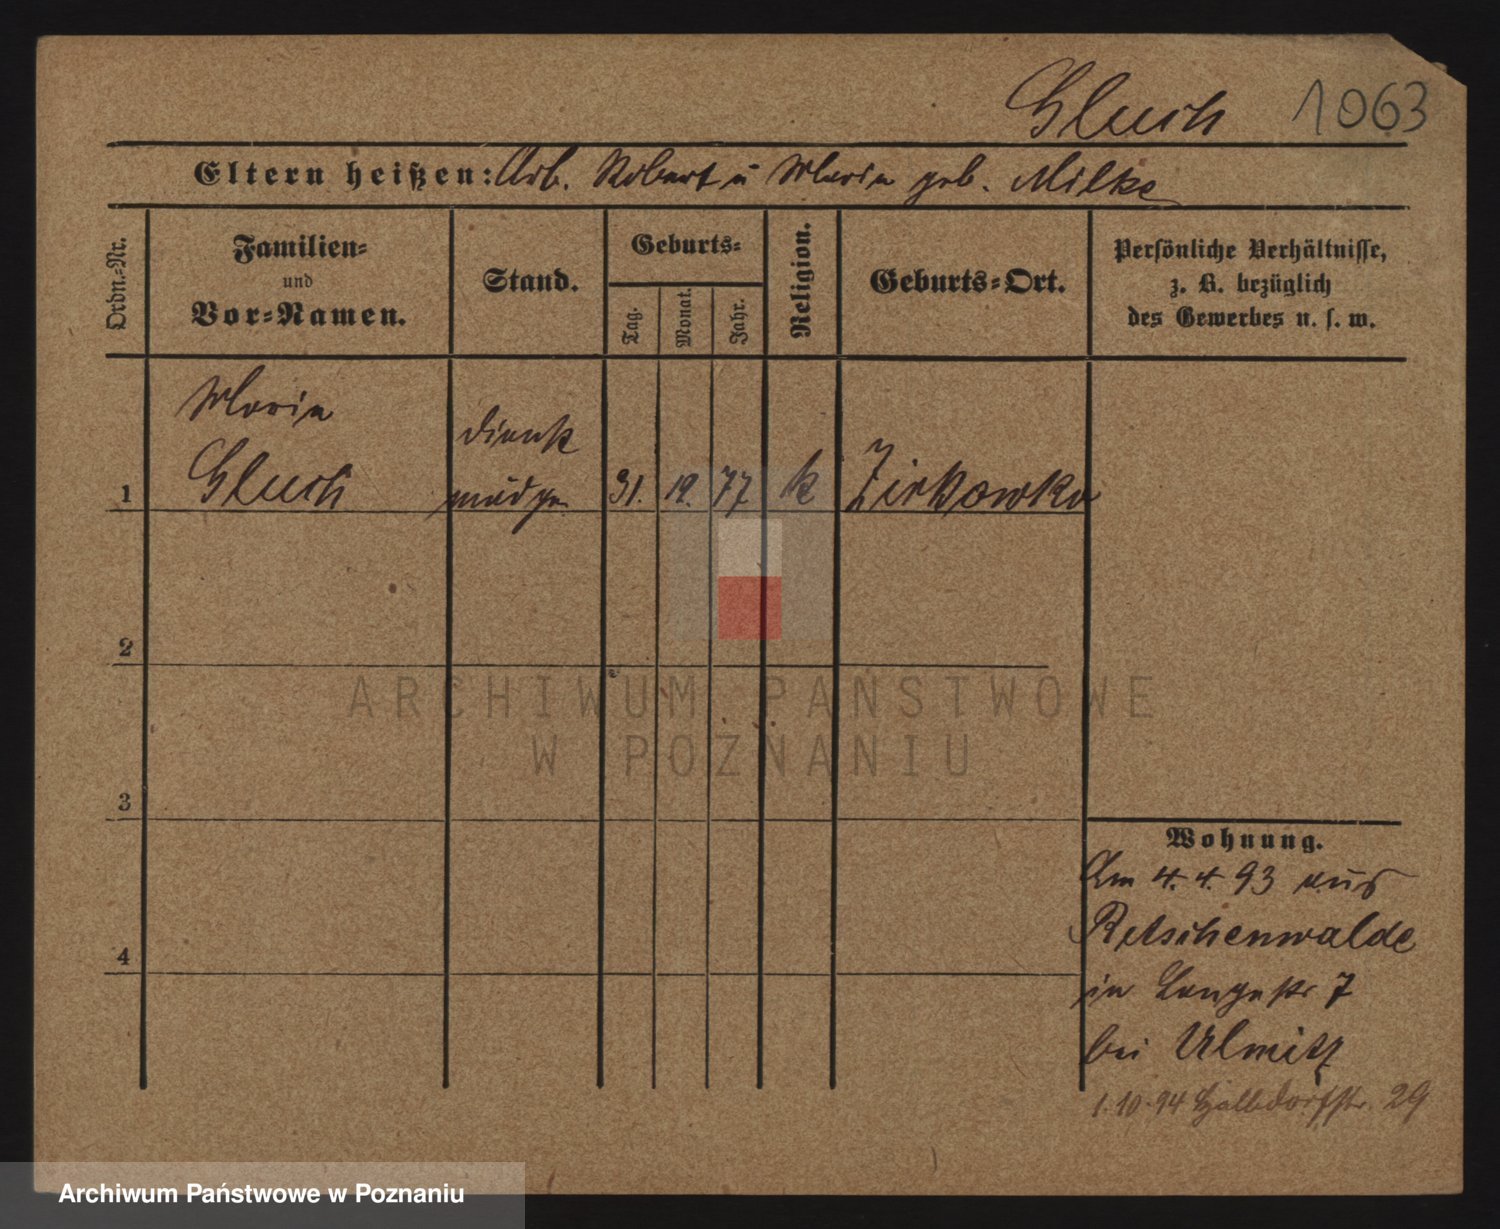 Gluch 1063
Eltern heißen: Arb. Robert u Maria geb. Milke
Ordn.-Nr.
Familien-
und
Vor-Namen.
Stand.
Geburts-
Tag.
Monat.
Jahr.
Religion.
Geburts-Ort.
Persönliche Verhältnisse,
z. B. bezüglich
des Gewerbes u. s. w.
Maria
Gluch
dienst
mädgn
1
31. 12. 77 k Zirkowko
2
3
4
Wohnung.
Am 4. 4. 93 aus
Retschenwalde
in Langestr 7
bei Ulmitz
1. 10. 94 Halbdorfstr. 29
ARCHIWUM PAŃSTWOWE
W POZNANIU
Archiwum Państwowe w Poznaniu